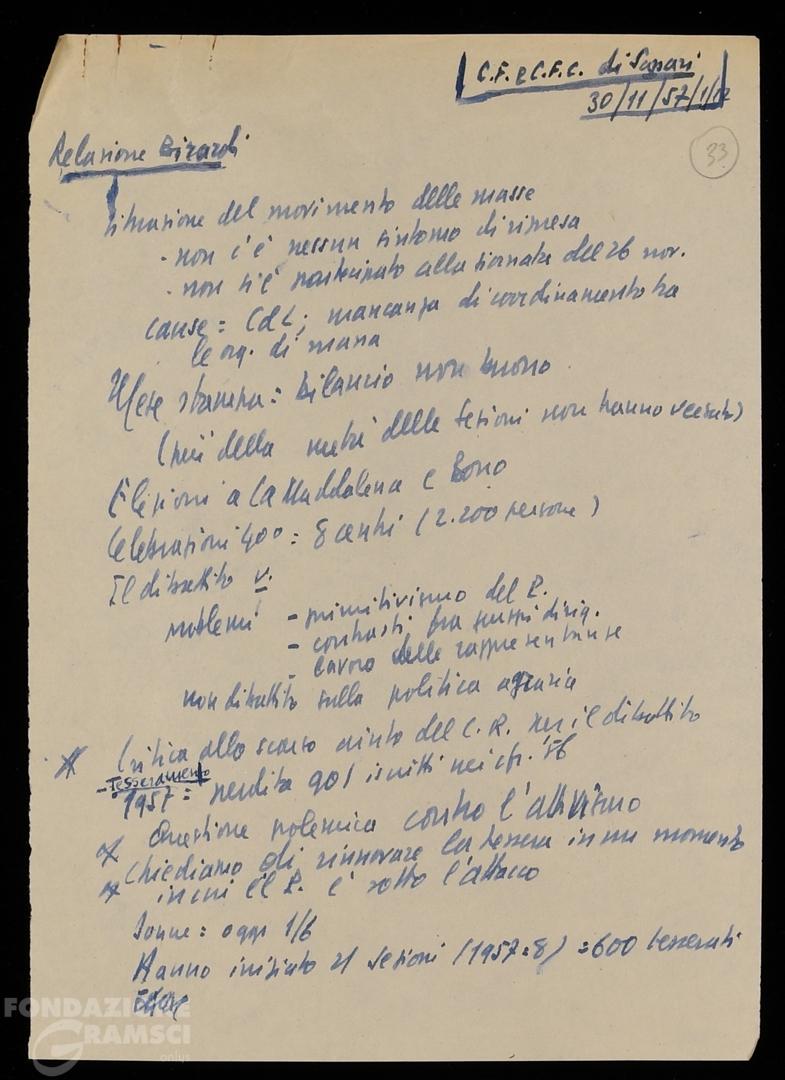 C.F. e C.F.C. di Sassari
30/11/57/1/12
33
Relazione Birardi
Situazione del movimento delle masse
- non c'è nessun sintomo di ripresa
- non si è partecipato alla giornata del 26 nov.
cause = CdL; mancanza di coordinamento tra
le org. di massa
Mese stampa: bilancio non buono
(più della metà delle sezioni non hanno versato)
Elezioni a La Maddalena e Bono
Celebrazioni 40° = 8 centri (2.200 persone)
Il dibattito v.
problemi - primitivismo del P.
- contrasti fra gruppi dirig.
- lavoro delle rappresentanze
non dibattito sulla politica agraria
Critica allo scarso aiuto del C.R. per il dibattito
- Tesseramento
1957 = perdita 901 iscritti nei cfr. '56
Questione polemica contro l'attivismo
Chiediamo di rinnovare la tessera in un momento
in cui il P. è sotto l'attacco
Donne: oggi 1/6
Hanno iniziato 21 sezioni (1957=8) = 600 tesserati
FONDAZIONE
GRAMSCI
onlus